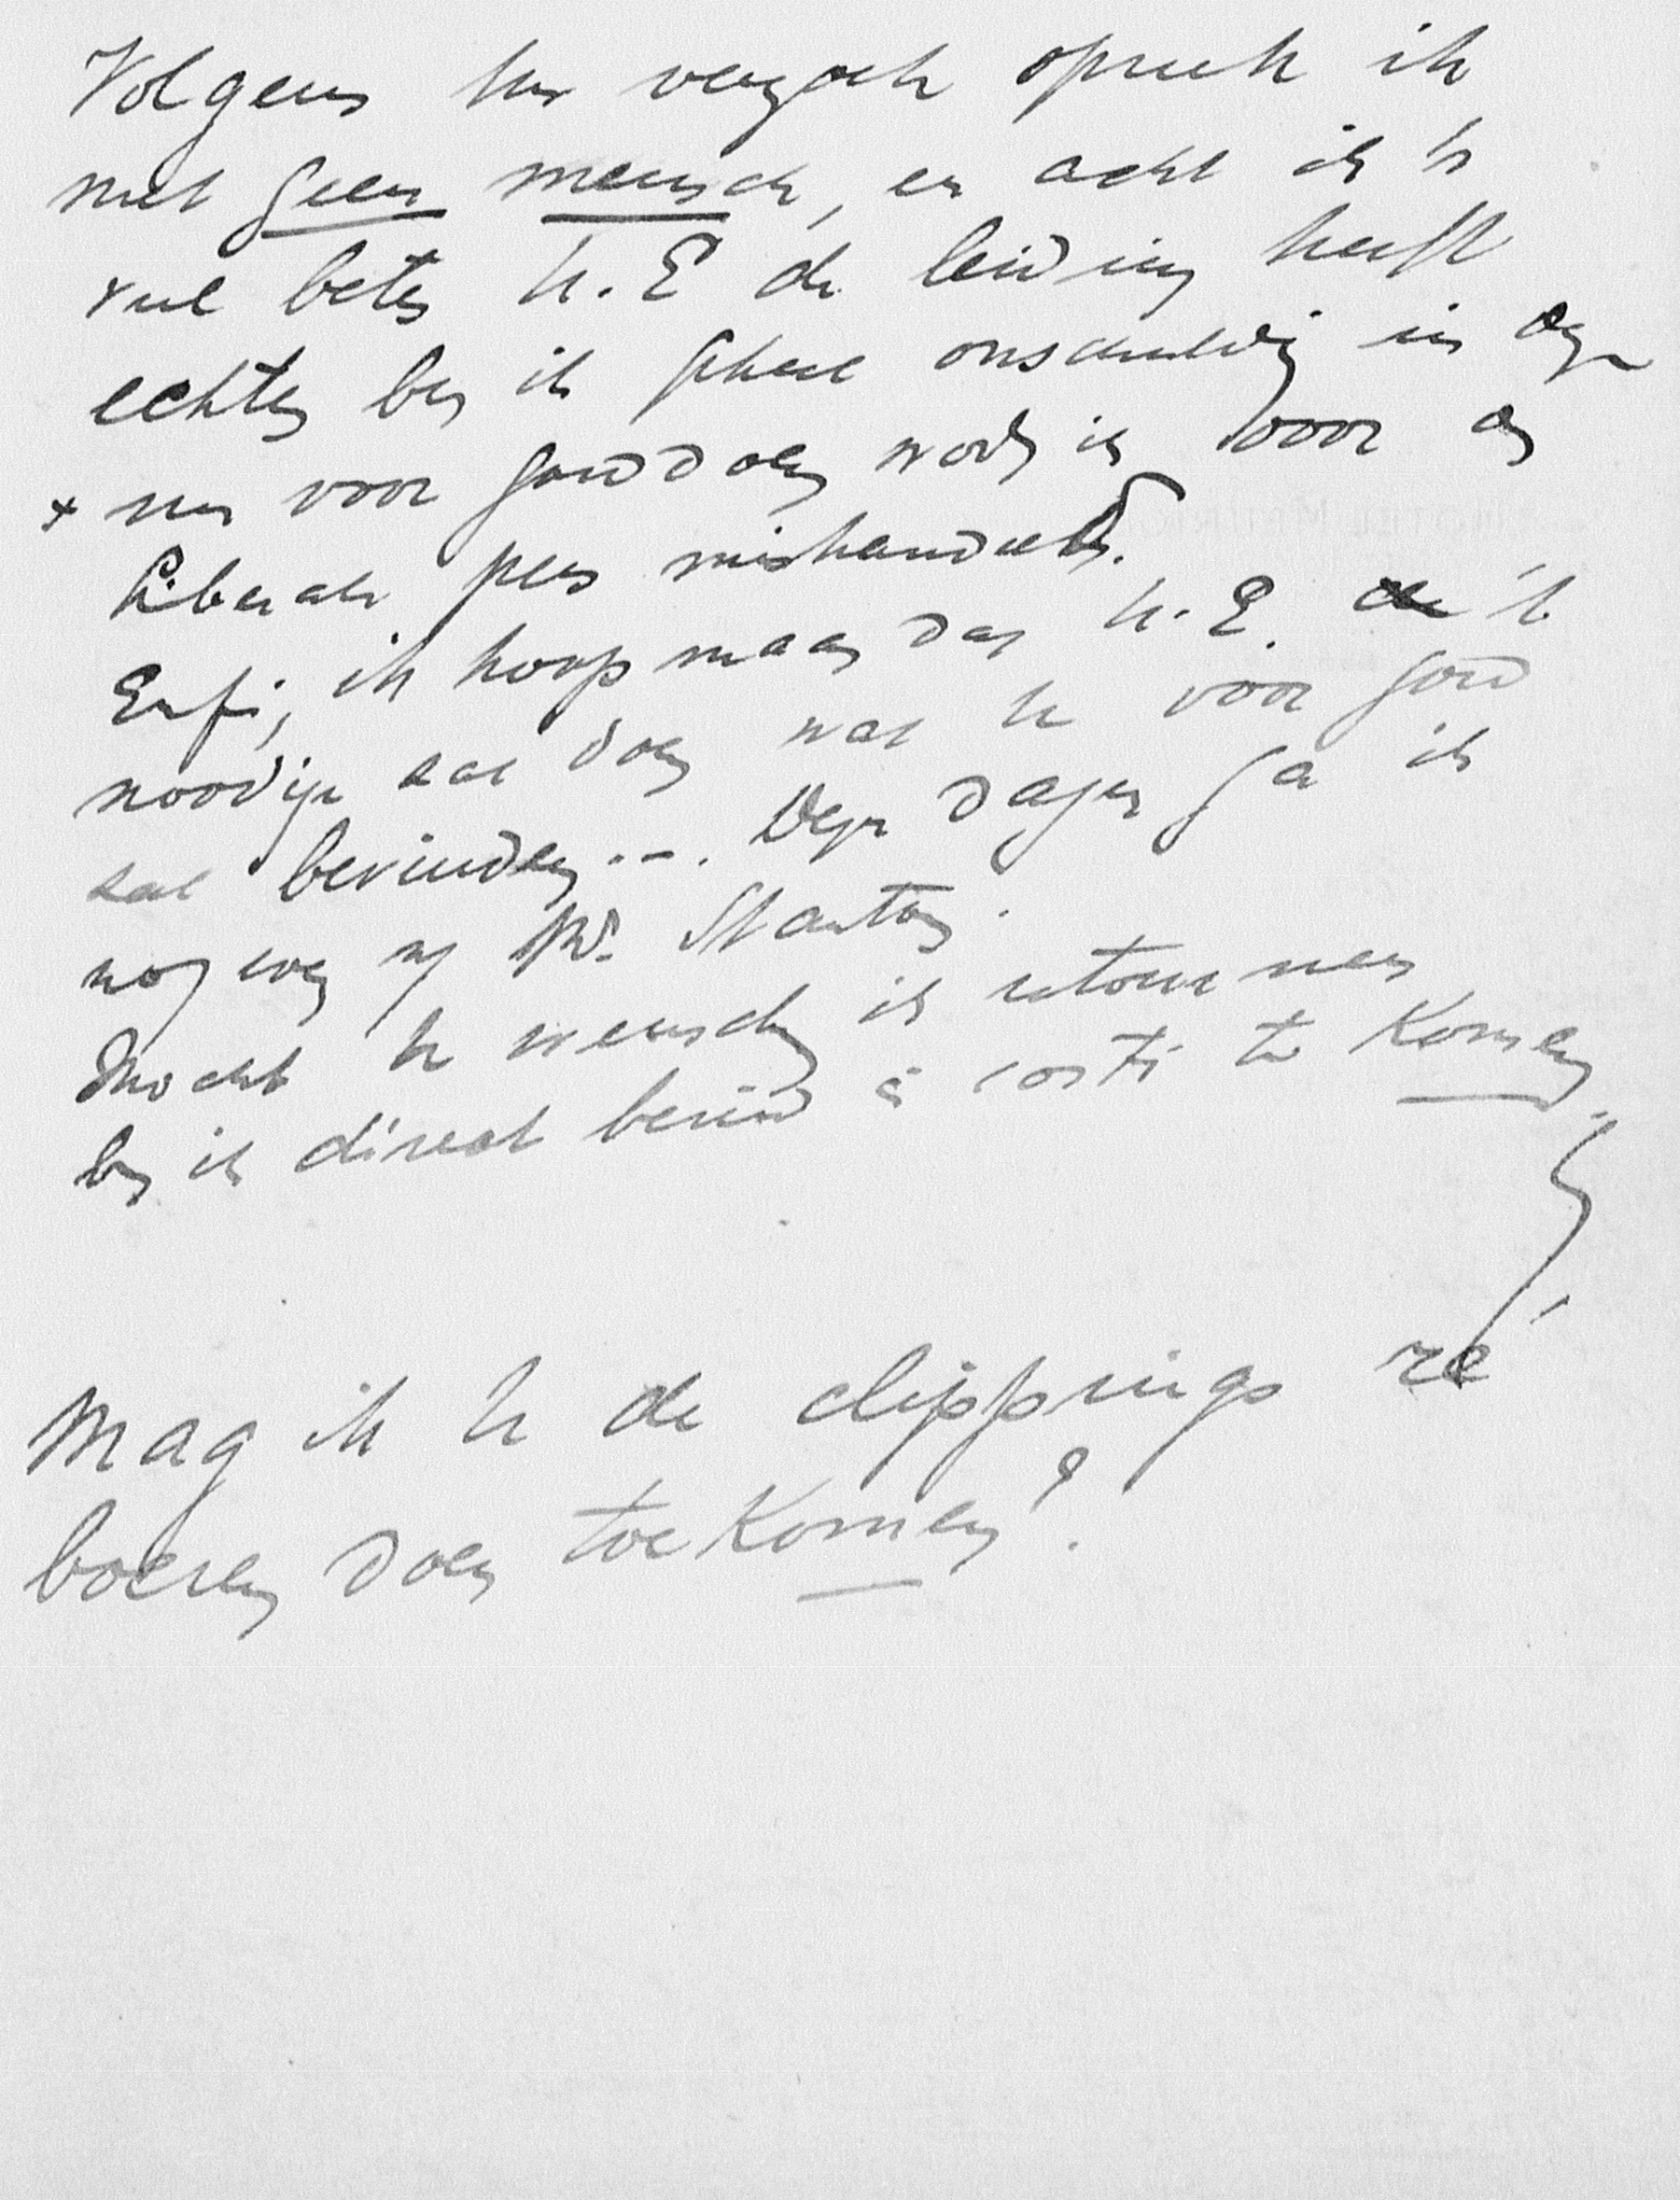 Volgens Uw verzoek spreek ik
met geen mensch, en acht ik 't
veel beter U.E de leiding heeft
echter ben ik geheel onschuldig in deze
x nu voor goed doen word ik door de
Liberale pers mishandeld.
Enfin, ik hoop maar dat U.E. 't
noodige zal doen wat U voor goed
zal bevinden... Deze dagen ga ik
nog even Mr. Stanton.
Mocht U wenschen ik retourneer
ben ik direct bereid à costi te Komen.
Mag ik U de clippings ré
boeren doen toeKomen?